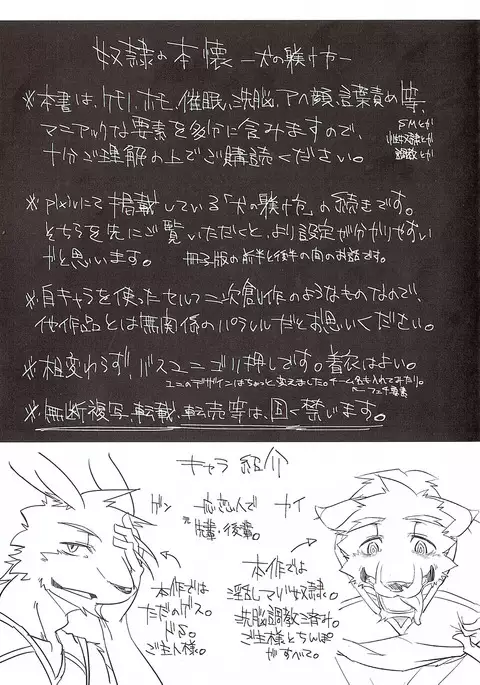 奴隷の本懐 ー犬の躾け方ー
※本書は、ケモノ、ホモ、催眠、洗脳、アヘ顔、言葉責め等、
マニアックな要素を多分に含みますので、
十分ご理解の上でご購読ください。
SMとか
性奴隷とか
調教とか
※pixivにて掲載している「犬の躾け方」の続きです。
そちらを先にご覧いただくと、より設定が分かりやすい
かと思います。
冊子版の前半と後半の間のお話です。
※自キャラを使ったセルフ二次創作のようなものなので、
他作品とは無関係のパラレルだとお思いください。
※相変わらず、バスユニゴリ押しです。着衣はよい。
ユニのデザインはちょっと変えました。チーム名も入れてみたり。
※無断複写、転載、転売等は、固く禁じます。
キャラ紹介
ゲン
応恋人で
元先輩・後輩。
カイ
本作では
ただのゲス。
ドS。
ご主人様。
本作では
淫乱マゾ奴隷。
洗脳調教済み。
ご主様とちんぽ
がすべて。